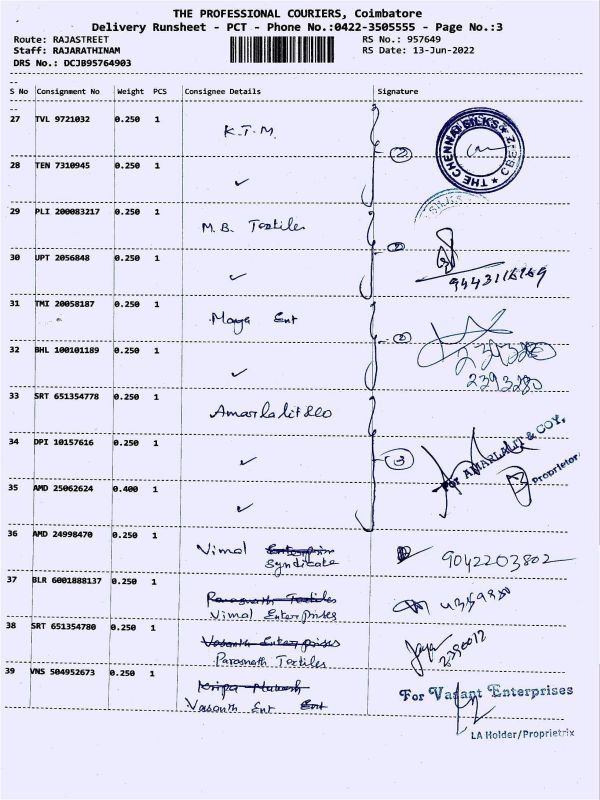 THE PROFESSIONAL COURIERS, Coimbatore
Delivery Runsheet - PCT - Phone No.:0422-3505555 - Page No.:3
Route: RAJASTREET RS No.: 957649
Staff: RAJARATHINAM RS Date: 13-Jun-2022
DRS No.: DCJB95764903
S No Consignment No Weight PCS Consignee Details Signature
27 TVL 9721032 0.250 1 K.T.M.
② THE CHENNAI SILKS CBE
28 TEN 7310945 0.250 1 ✓
SILKS
29 PLI 200083217 0.250 1 M.B. Textiles
②
30 UPT 2056848 0.250 1 ✓
31 TMI 20058187 0.250 1 Maya Ent
②
32 BHL 100101189 0.250 1 ✓
2393280
33 SRT 651354778 0.250 1 Amarlalit &co
34 DPI 10157616 0.250 1 ✓ ③
For AMARLALIT & COY.
Proprietor
35 AMD 25062624 0.400 1 ✓
36 AMD 24998470 0.250 1 Vimal Enterprises
Syndicate 9042203802
37 BLR 6001888137 0.250 1 Parasnath Textiles
Vimal Enterprises
38 SRT 651354780 0.250 1 Vasanth Enterprises
Parasnath Textiles Jaya 2390012
39 VNS 504952673 0.250 1
Vasanth Ent Ent
For Vasant Enterprises
LA Holder/Proprietrix